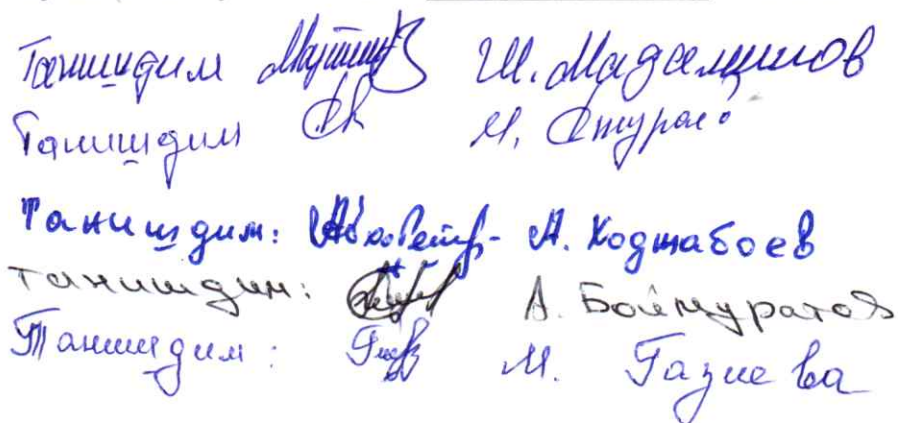 Танишдим Ш. Мадаминов
Танишдим М.
Танишдим: А. Ходжабоев
Танишдим: А. Боймуратов
Танишдим: М. Газиева